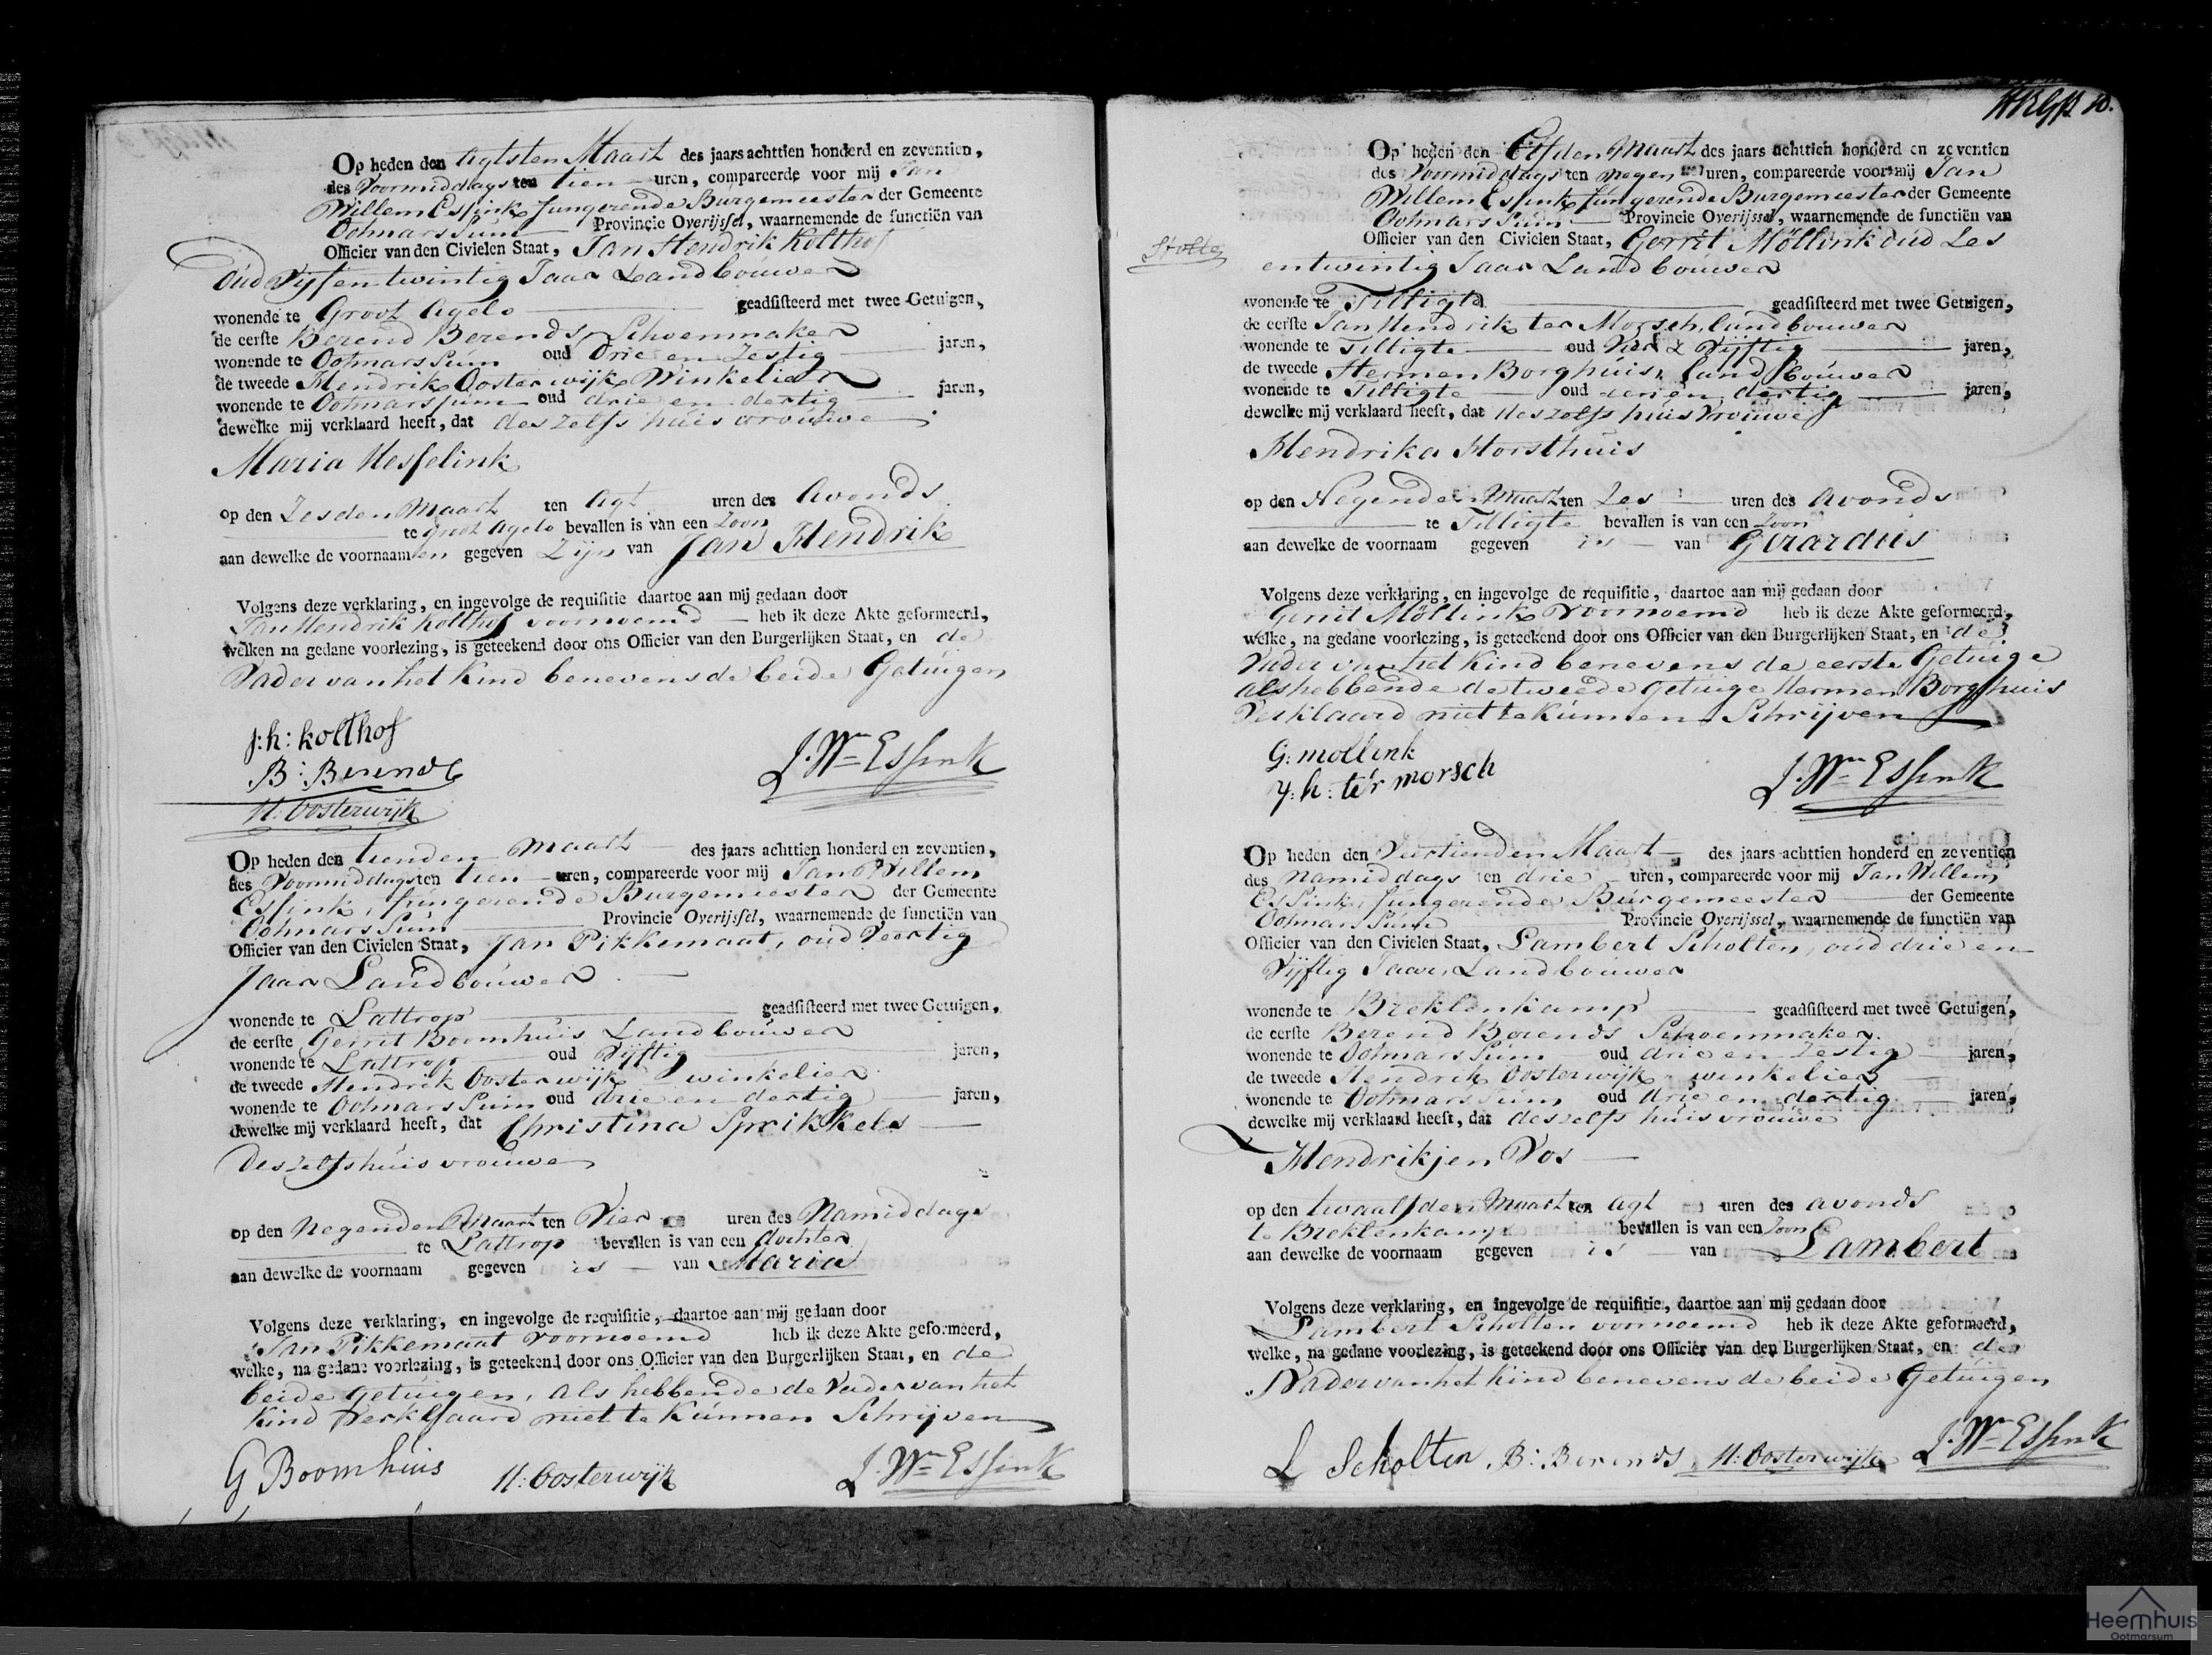 Op heden den Agtsten Maart des jaars achttien honderd en zeventien,
des Voormiddags ten tien uren, compareerde voor mij Jan
Willem Essink fungerende Burgemeester der Gemeente
Ootmarssum Provincie Overijssel, waarnemende de functiën van
Officier van den Civielen Staat, Jan Hendrik Kolthof
Oud Vijf en twintig Jaar Landbouwer
wonende te Groot Agelo geadsisteerd met twee Getuigen,
de eerste Berend Berends, Schoenmaker
wonende te Ootmarssum oud Drie en Zestig jaren,
de tweede Hendrik Oosterwijk Winkelier
wonende te Ootmarssum oud drie en dertig jaren,
dewelke mij verklaard heeft, dat deszelfs huisvrouwe
Maria Hesselink
op den Zesden Maart ten Agt uren des Avonds
te Groot Agelo bevallen is van een Zoon
aan dewelke de voornaamen gegeven Zijn van Jan Hendrik
Volgens deze verklaring, en ingevolge de requisitie daartoe aan mij gedaan door
Jan Hendrik Kolthof voornoemd heb ik deze Akte geformeerd,
welken na gedane voorlezing, is geteekend door ons Officier van den Burgerlijken Staat, en de
Vader van het Kind benevens de beide Getuigen
j:h: kolthof
B: Berends
J. Wm Essink
H: Oosterwijk
Op heden den tienden Maart des jaars achttien honderd en zeventien,
des Voormiddags ten tien uren, compareerde voor mij Jan Willem
Essink, fungerende Burgemeester der Gemeente
Ootmarssum Provincie Overijssel, waarnemende de functiën van
Officier van den Civielen Staat, Jan Pikkemaat, oud Veertig
Jaar Landbouwer
wonende te Lattrop geadsisteerd met twee Getuigen,
de eerste Gerrit Boomhuis Landbouwer
wonende te Lattrop oud Vijftig jaren,
de tweede Hendrik Oosterwijk winkelier
wonende te Ootmarssum oud drie en dertig jaren,
dewelke mij verklaard heeft, dat Christina Sprikkels
Deszelfs huisvrouwe
op den Negenden Maart ten Vier uren des Namiddags
te Lattrop bevallen is van een dochter
aan dewelke de voornaam gegeven is van Maria
Volgens deze verklaring, en ingevolge de requisitie, daartoe aan mij gedaan door
Jan Pikkemaat voornoemd heb ik deze Akte geformeerd,
welke, na gedane voorlezing, is geteekend door ons Officier van den Burgerlijken Staat, en de
beide getuigen, als hebbende de Vader van het
Kind Verklaard niet te Kunnen Schrijven
G Boomhuis H: Oosterwijk J. Wm Essink
10.
Op heden den Elfden Maart des jaars achttien honderd en zeventien
des Voormiddags ten negen uren, compareerde voor mij Jan
Willem Essink fungerende Burgemeester der Gemeente
Ootmarssum Provincie Overijssel, waarnemende de functiën van
Officier van den Civielen Staat, Gerrit Möllink oud Zes
en twintig Jaar Landbouwer
wonende te Tilligte geadsisteerd met twee Getuigen,
de eerste Jan Hendrik ter Morsch, landbouwer
wonende te Tilligte oud Vier & Vijftig jaren,
de tweede Hermen Borghuis, landbouwer
wonende te Tilligte oud en dertig jaren,
dewelke mij verklaard heeft, dat deszelfs huisvrouwe
Hendrika Horsthuis
op den Negenden Maart ten Zes uren des Avonds
te Tilligte bevallen is van een Zoon
aan dewelke de voornaam gegeven is van Gerardus
Volgens deze verklaring, en ingevolge de requisitie, daartoe aan mij gedaan door
Gerrit Möllink Voornoemd heb ik deze Akte geformeerd,
welke, na gedane voorlezing, is geteekend door ons Officier van den Burgerlijken Staat, en de
Vader van het Kind benevens de eerste Getuige
als hebbende de tweede getuige Hermen Borghuis
Verklaard niet te Kunnen Schrijven
G: mollink
J. Wm Essink
j: h: ter morsch
Op heden den Veertienden Maart des jaars achttien honderd en zeventien
des Namiddags ten drie uren, compareerde voor mij Jan Willem
Essink, fungerende Burgemeester der Gemeente
Ootmarssum Provincie Overijssel, waarnemende de functiën van
Officier van den Civielen Staat, Lambert Scholten, oud drie en
Vijftig Jaar, Landbouwer
wonende te Breklenkamp geadsisteerd met twee Getuigen,
de eerste Berend Berends Schoenmaker
wonende te Ootmarssum oud drie en Zestig jaren,
de tweede Hendrik Oosterwijk winkelier
wonende te Ootmarssum oud drie en dertig jaren,
dewelke mij verklaard heeft, dat deszelfs huisvrouwe
Hendrikjen Vos
op den twaalfden Maart ten agt uren des avonds
te Breklenkamp bevallen is van een Zoon
aan dewelke de voornaam gegeven is van Lambert
Volgens deze verklaring, en ingevolge de requisitie, daartoe aan mij gedaan door
Lambert Scholten voornoemd heb ik deze Akte geformeerd,
welke, na gedane voorlezing, is geteekend door ons Officier van den Burgerlijken Staat, en de
Vader van het kind benevens de beide Getuigen
L Scholten B: Berends H: Oosterwijk J. Wm Essink
Heemhuis
Ootmarsum